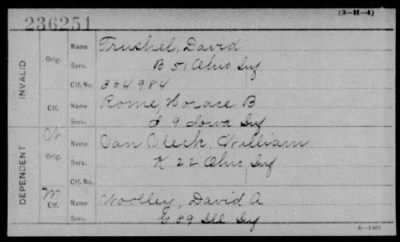 (3-H-4)
236251
INVALID
Orig. Name Trushel, David
Serv. B 51 Ohio Inf
Ctf. No. 364984
Ctf. Name Rome, Horace B
Serv. I 9 Iowa Inf
DEPENDENT
W Orig. Name Van William
Serv. K 22 Ohio Inf
Ctf. No.
M Ctf. Name Woolley, David A
Serv. E 89 Ill Inf